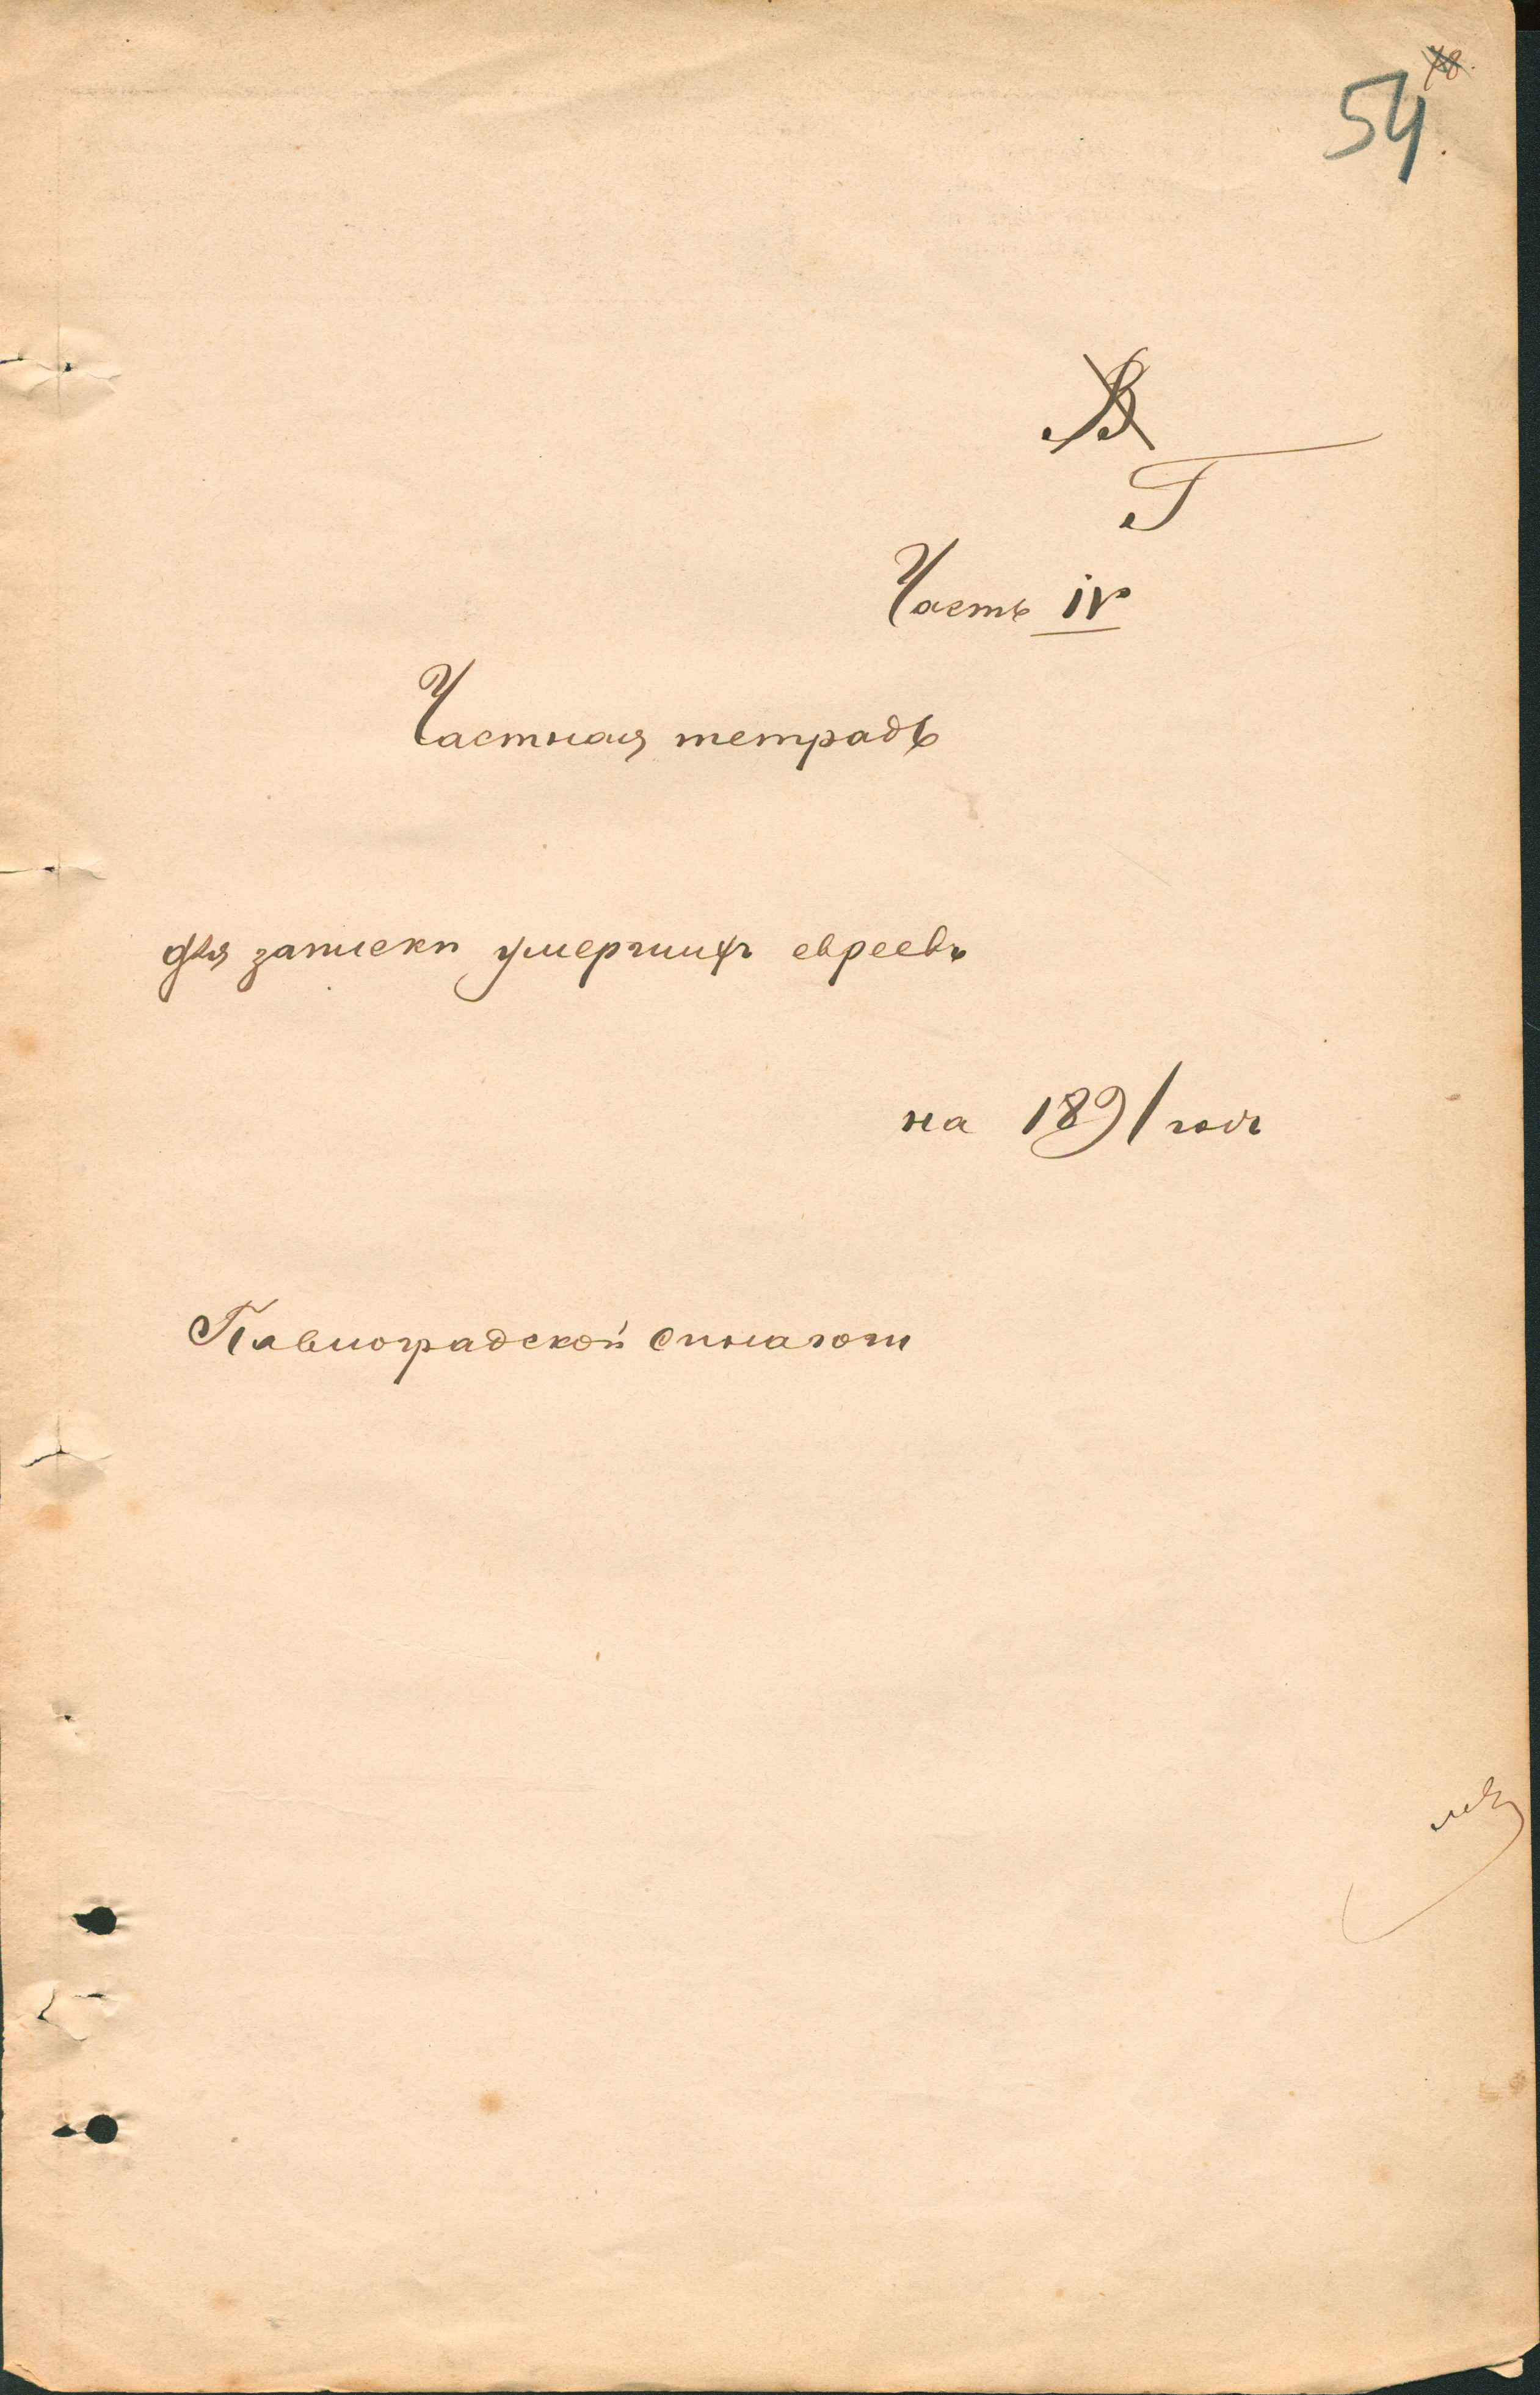 54.
В
Г
Часть IV
Частная тетрадь
для записки умерших евреевъ
на 1891 годъ
Павлоградской синагоги